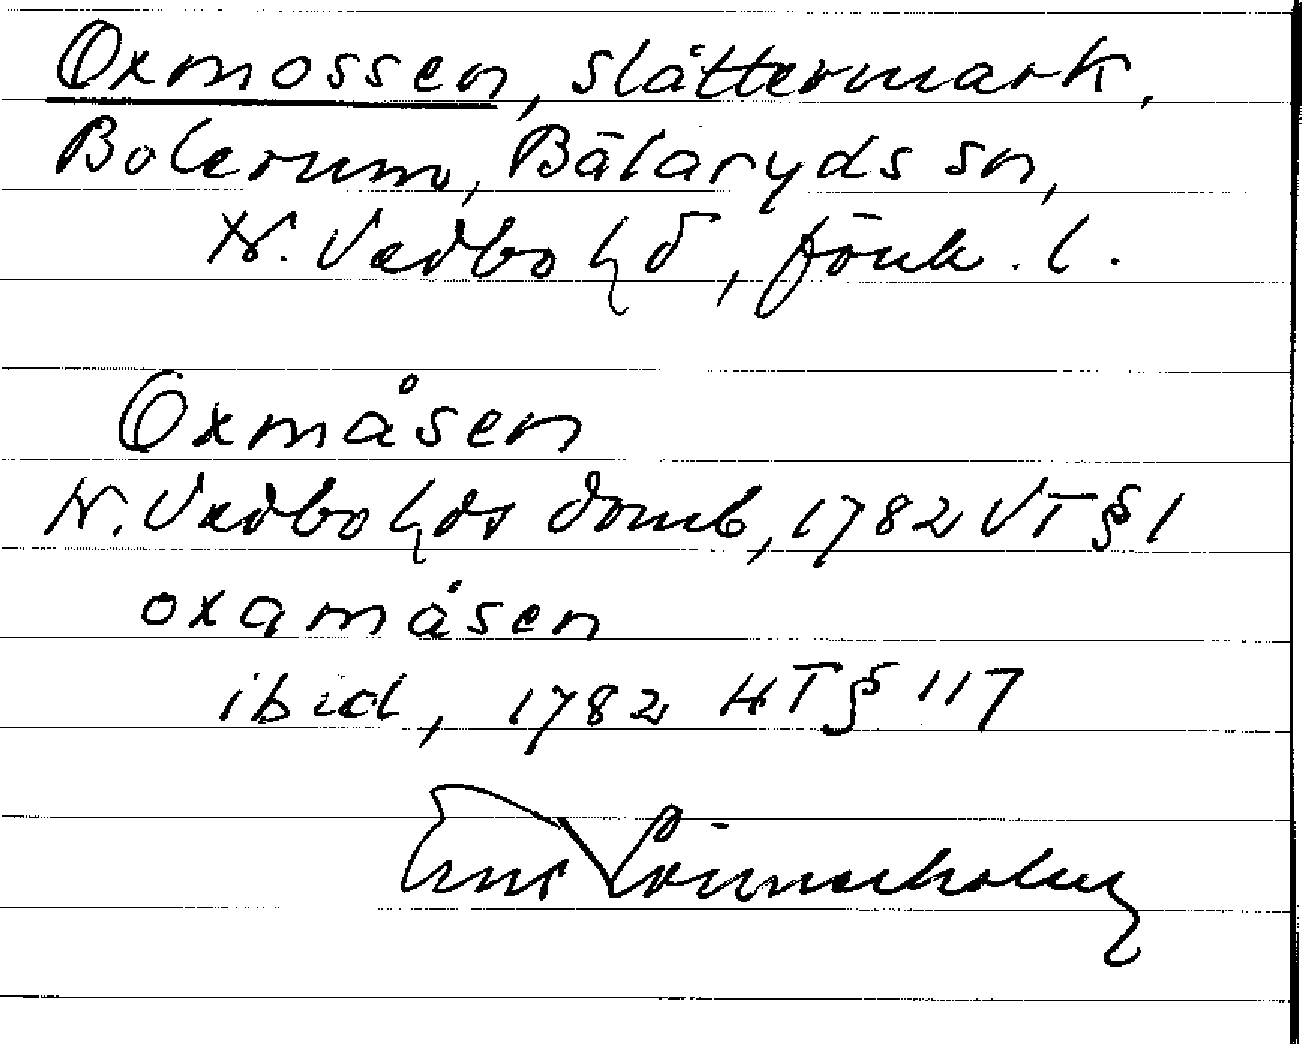 Oxmossen, slåttermark,
Bolerum, Bälaryds sn,
N. Vedbo hd, Jönk. l.
Oxmåsen
N. Vedbo hds domb, 1782 VT § 1
oxamåsen
ibid, 1782 HT § 117
Ernst Lönnerholm